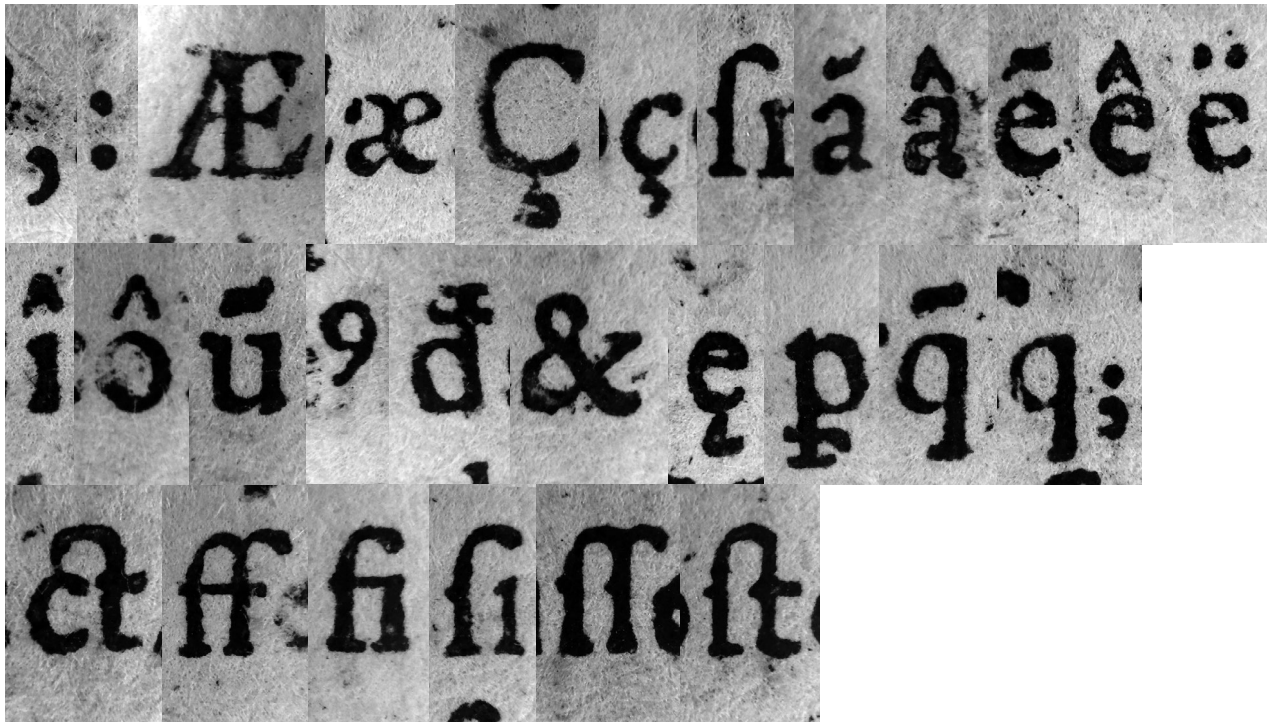 , : Æ æ Ç ç ſ ã â ẽ ê ë
î ô ũ ꝰ đ & ę ꝑ q̃ q;
ct ff fi ſi ſſ ſt